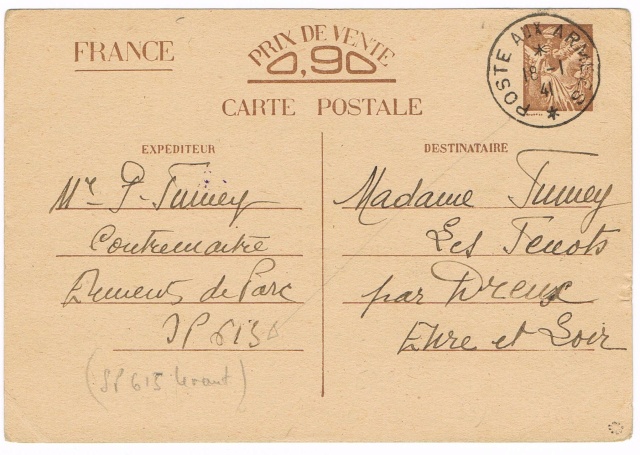 FRANCE
PRIX DE VENTE
0,90
CARTE POSTALE
POSTE AUX ARMÉES
18 - 1
41
EXPÉDITEUR
Mr P. Tumey
Contremaitre
Elements de Parc
SP 613
(SP 613 )
DESTINATAIRE
Madame Tumey
Les Fenots
par Dreux
Eure et Loir